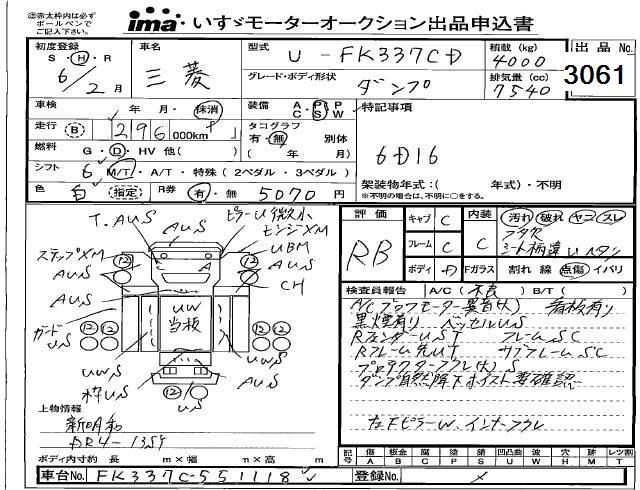 ㊟赤太枠内は必ず
ボールペンで
ご記入下さい。
ima いすゞモーターオークション出品申込書
初度登録 S・H・R 6/2月
車名 三菱
型式 U-FK337CD
積載(kg) 4000
出品No. 3061
グレード・ボディ形状 ダンプ
排気量(cc) 7540
車検 年 月・抹消
装備 A・P・P C・S・W
特記事項
走行 B 296 000km
タコグラフ 有・無 別体 ( 年 月)
燃料 G・D・HV 他( )
6D16
シフト 6 M/T・A/T・特殊(2ペダル・3ペダル)
架装物年式:( 年式)・不明
※不明の場合は、不明に○をする。
色 白 指定 R券 有・無 5070円
T.AUS AUS ピラーU微小 ヒンジXM
ステップXM UBM
AUS AUS CH
12 12
ガードUS UW 当板
12 12 12 12
UWS UWS
枠US 12 US AUS
評価 RB
キャブ C 内装 C 汚れ 破れ ヤコ スレ
フレーム C フタ欠 シート柄違い ヘタリ
ボディ D Fガラス 割れ 線 点傷 イパリ
検査員報告 A/C(不良) B/T( )
A/Cブロアモーター異音(大) 看板有り
黒煙有り ベッセルUS
RフェンダーUST フレームSC
Rフレーム先UT サブフレームSC
プロテクターフレ(大)S
ダンプ自然降下ホイスト要確認
左下ピラーW、インナーフクレ
上物情報
新明和
DR4-1355
ボディ内寸約 長 m×幅 m×高 m
記号 傷A 板金B 腐C 塗P 錆S 凹U 波W 穴H 跡M レツ割T
車台No. FK337C-551118
登録No.